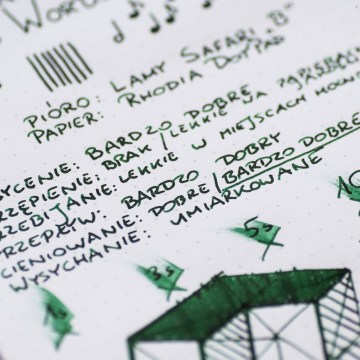 PIÓRO: LAMY SAFARI "B"
PAPIER: RHODIA DOTPAD
YCENIE: BARDZO DOBRE
RZĘPIENIE: BRAK / LEKKIE NA
RZEBIJANIE: LEKKIE W MIEJSCACH
PRZEPŁYW: BARDZO DOBRY
CIENIOWANIE: DOBRE / BARDZO DOBRE
WYSYCHANIE: UMIARKOWANE
1s 3s 5s 10